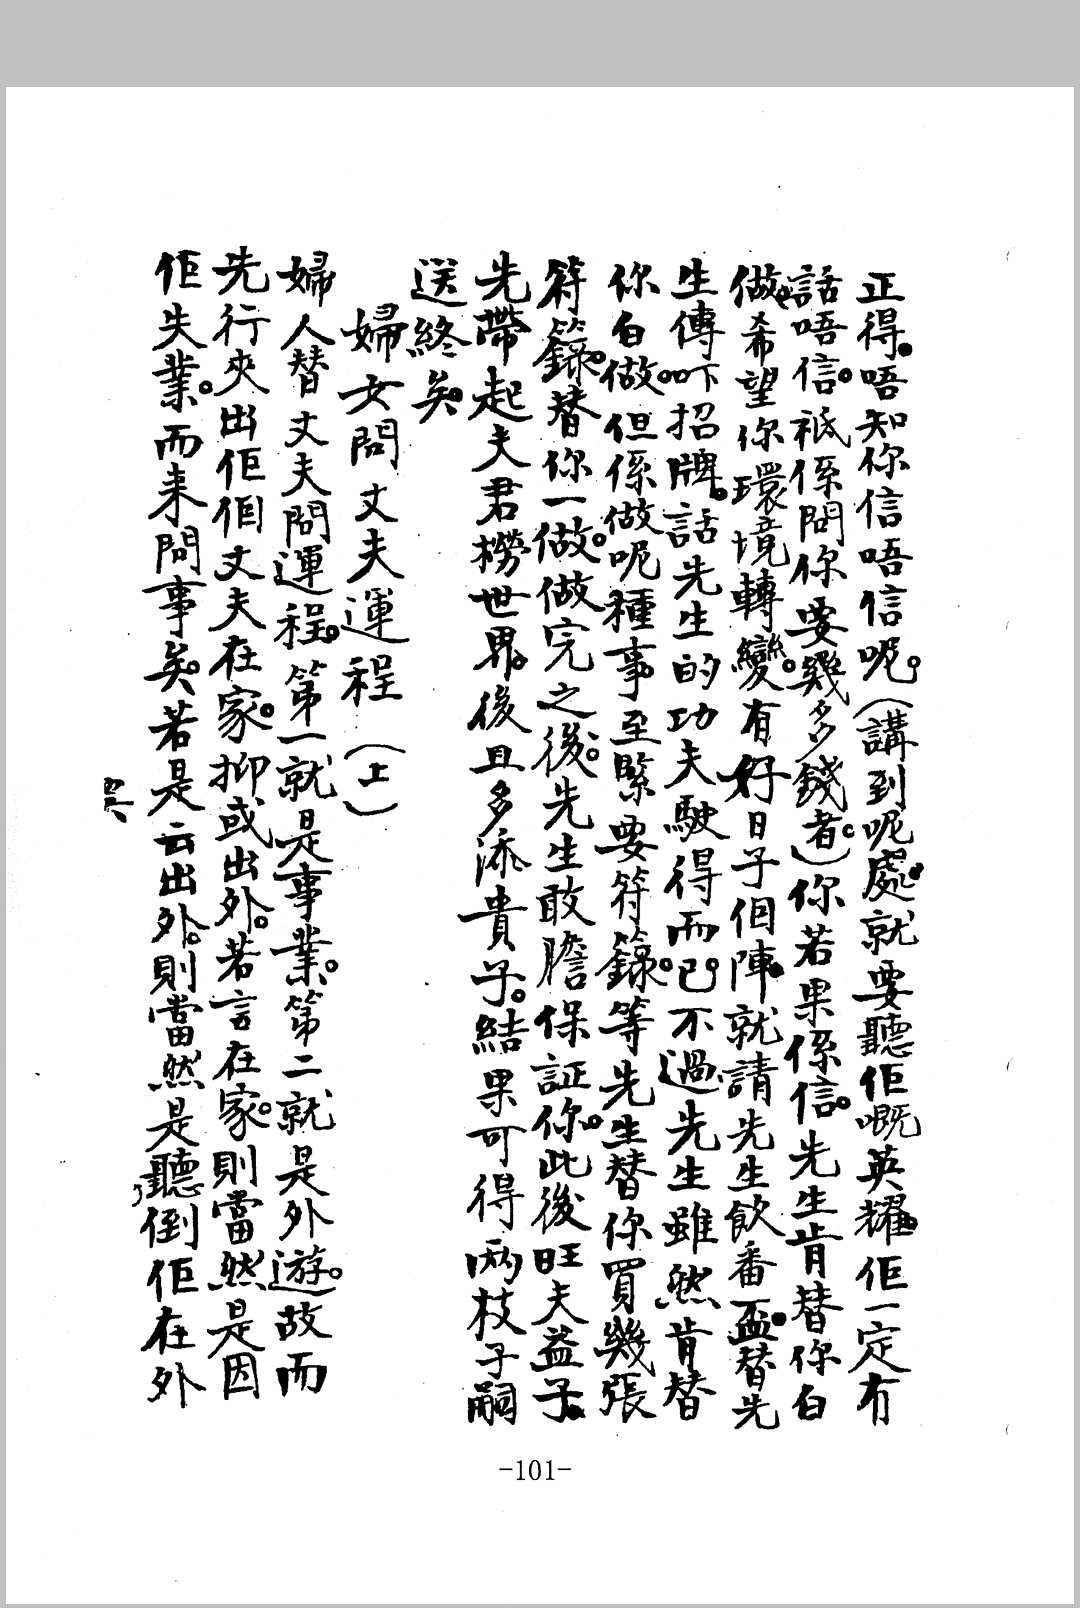 正得。唔知你信唔信呢。(講到呢處。就要聽佢嘅英耀。佢一定有
話唔信。祇係問你要幾多錢者。)你若果係信。先生肯替你白
做。希望你環境轉變。有好日子個陣。就請先生飲番盃。替先
生傳吓招牌。話先生的功夫駛得而已。不過先生雖然肯替
你白做。但係做呢種事至緊要符籙。等先生替你買幾張
符籙。替你一做。做完之後。先生敢膽保証你。此後旺夫益子。
先帶起夫君撈世界。後且多添貴子。結果可得兩枝子嗣
送終矣。
婦女問丈夫運程(上)
婦人替丈夫問運程。第一就是事業。第二就是外遊。故而
先行夾出佢個丈夫在家。抑或出外。若言在家。則當然是因
佢失業。而来問事矣。若是云出外。則當然是聽倒佢在外